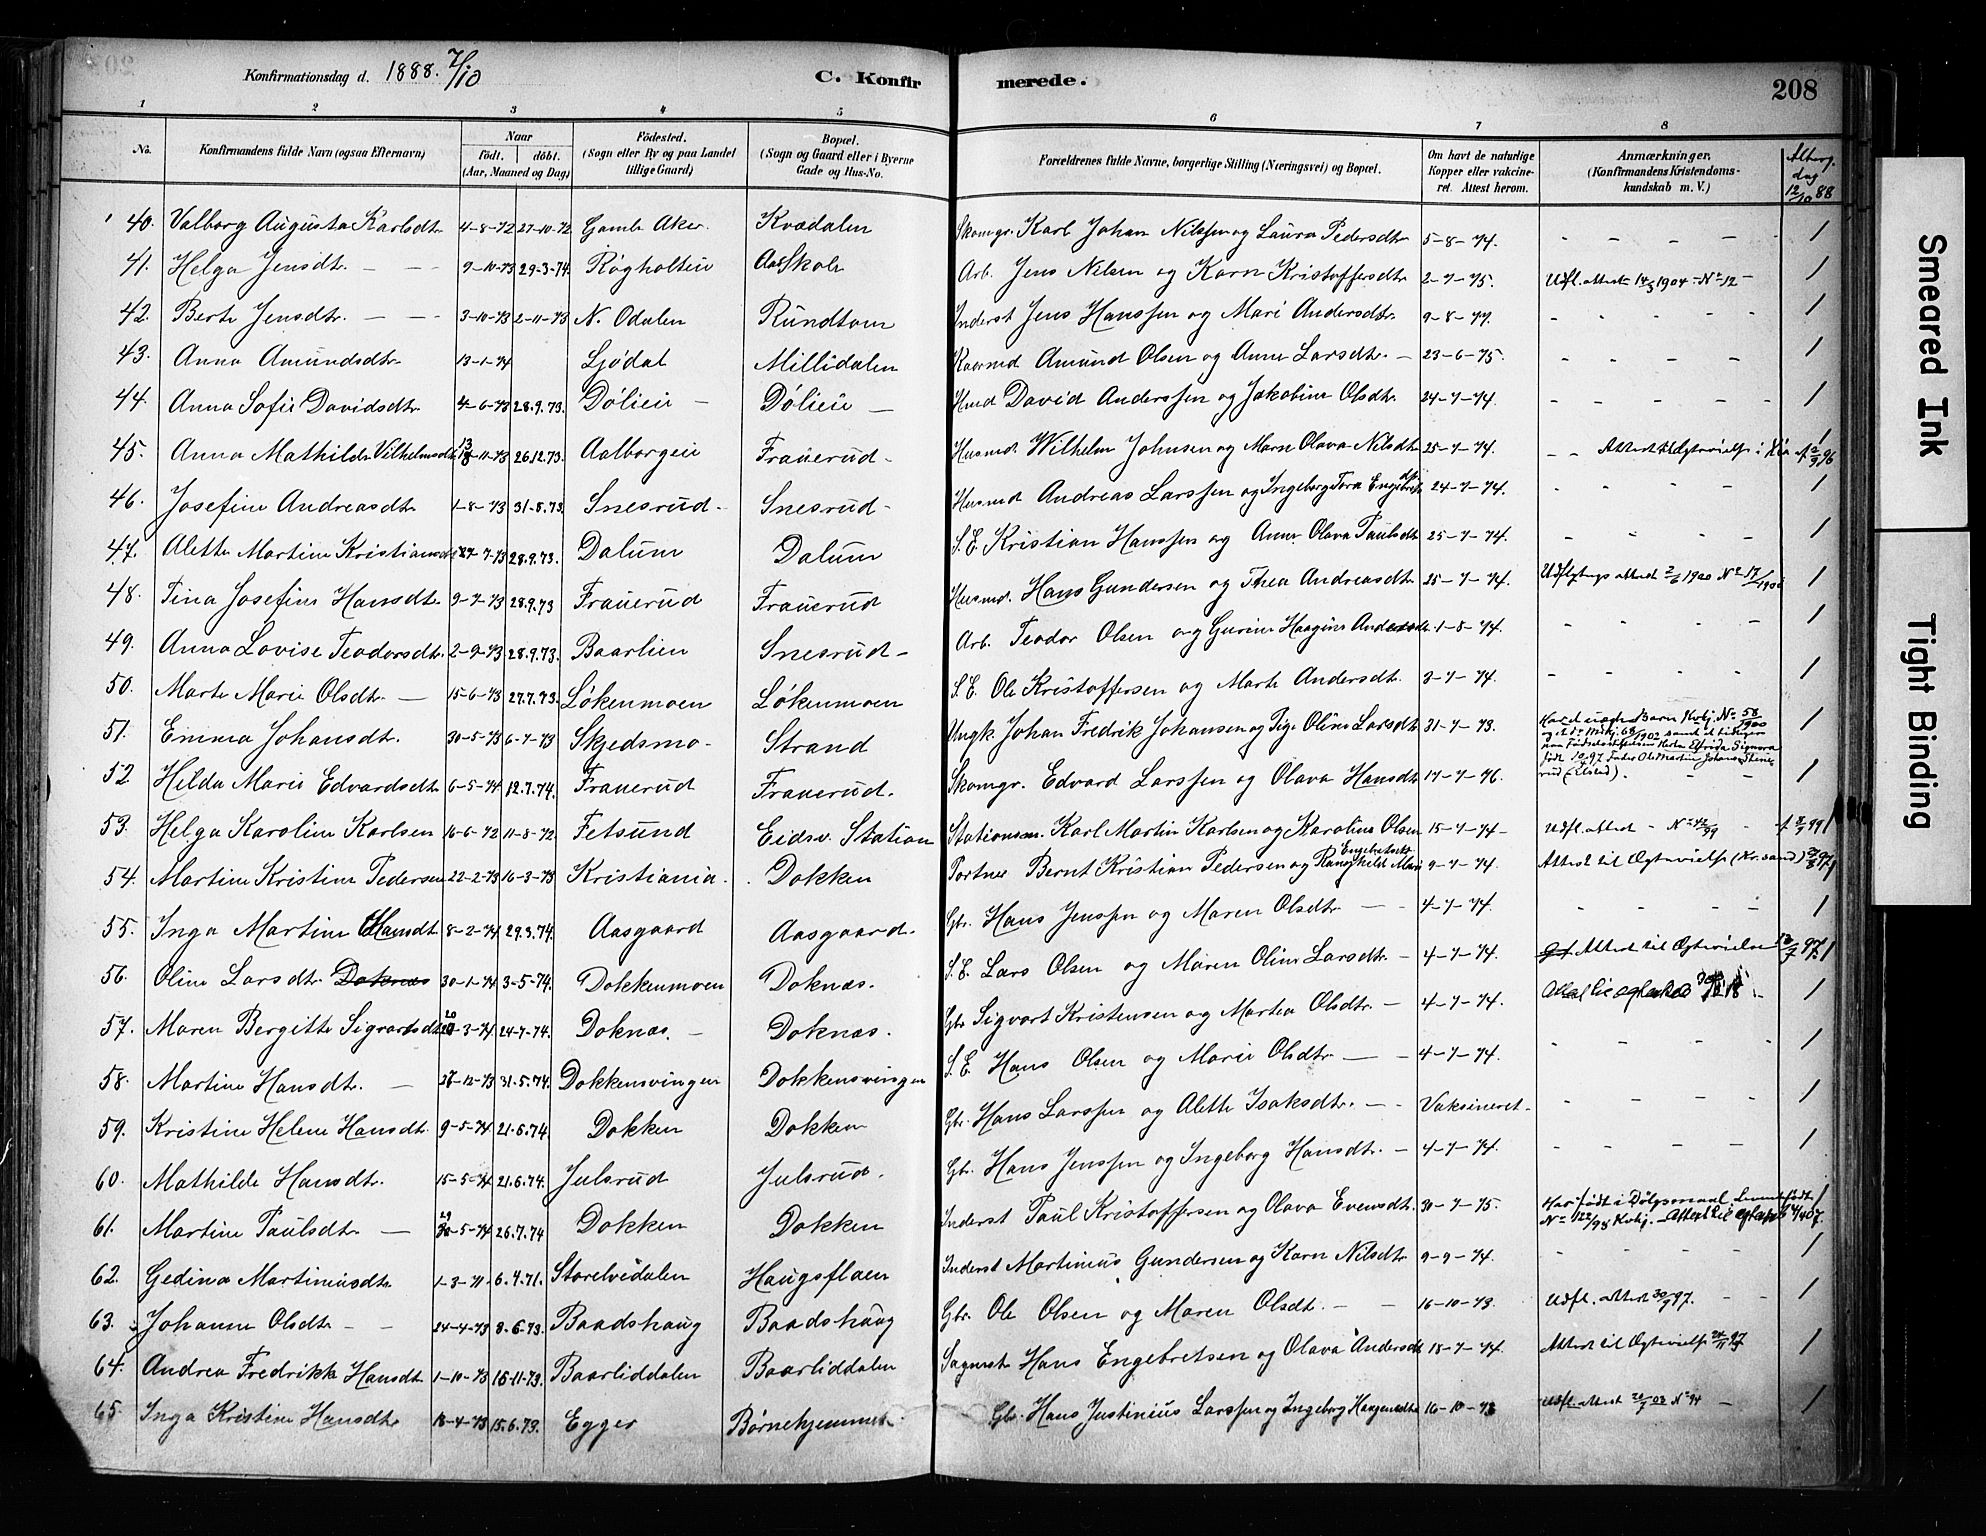 Konfirmationsdag d. 1888. 7/10
C. Konfirmerede.
208
1 2 3 4 5 6 7 8
No. Konfirmandens fulde Navn (ogsaa Efternavn) Naar født. døbt. (Aar, Maaned og Dag) Fødested. (Sogn eller By og paa Landet tillige Gaard) Bopæl. (Sogn og Gaard eller i Byerne Gade og Hus-No. Forældrenes fulde Navne, borgerlige Stilling (Næringsvei) og Bopæl. Om havt de naturlige Kopper eller vaccineret. Attest herom. Anmærkninger. (Konfirmandens Kristendomskundskab m. V.) Altergdag 12/10 88
40. Valborg Augusta Karlsdtr. 4-8-72 27-10-72 Gamle Aker. Kvædalen Skomgr. Karl Johan Nilssen og Laura Pedersdtr. 5-8-74. - - - - - /
41. Helga Jensdtr. — — 9-10-73 29-3-74. Røgholteie Aas Skole Arb. Jens Nilsen og Karn Kristoffersdtr 2-7-75. Udfl. attest 14/3 1904 - No 12 - /
42. Berte Jensdtr. — — 3-10-73 2-11-73 N. Odalen Rundtom Inderst Jens Hanssen og Mari Andersdtr. 9-8-77. - - - - - /
43. Anna Amundsdtr 13-1-74 Ljødal Millidalen Amund Olsen og Anne Larsdtr. — 23-6-75. - - - - /
44. Anna Sofie Davidsdtr. 4-6-73 28.9.73. Dølieie — Dølieie — Hmd David Anderssen og Jakobine Olsdtr. 24-7-74. - - - - - /
45. Anna Mathilde Vilhelmsdtr. 13-11-73 26.12.73. Aalborgeie Frauerud - Husmd. Wilhelm Johnsen og Marn Olava Nilsdtr 25-7-74. - - Attest til Ægtevielse i 2/9 96 /
46. Josefine Andreasdtr 1-8-73 31-8.73. Snesrud - Snesrud - Husmd Andreas Larssen og Ingeborg Tora Engebretsdtr 24-7-74. - - - - /
47. Alette Martine Kristiansdtr 27-7-73 28.9.73. Dalum Dalum S.E. Kristian Hanssen og Anne Olava Paulsdtr 25-7-74. - - - - /
48. Tina Josefine Hansdtr. 9-7-73 28.9.73 Frauerud Frauerud Husmd. Hans Gundersen og Thea Andreasdtr 25-7-74. Udflytnings attest 2/6 1900 No 17/1900 /
49. Anna Lovise Teodorsdtr. 2-9-73 28.9.73. Baarlien Snesrud - Arb. Teodor Olsen og Gurine Haagine Andersdtr. 1-8-74. - - - - /
50. Marte Marie Olsdtr. — 15-6-73 27.7.73. Løkenmoen Løkenmoen S.E. Ole Kristoffersen og Marte Andersdtr. 3-7-74. - - - - /
51. Emma Johansdtr. 30-5-73 6-7-73 Skjedsmo - Strand Ungk Johan Fredrik Johansen og Pige Oline Larsdtr. 31-7-73. Har et uægte Barn Kvkj. No 58/1900 /
52. Helda Marie Edvardsdtr 6-5-74 12.7.74. Frauerud Frauerud. Skomgr. Edvard Larssen og Olava Hansdtr 17-7-76. - - /
53. Helga Karoline Karlsen 16-6-72 11-8-72 Fetsund Eidsv. Station Stationsm. Karl Martin Karlsen og Karoline Olsen 15-7-74 - Udfl. attest - No 42/99 - /
54. Martine Kristine Pedersen 22-2-73 16-3-73 Kristiania. Dokken Portner Bernt Kristian Pedersen og Ranghild Marie Engebretsdtr 9-7-74. Attest til Ægtevielse (Kr.sand)
55. Inga Martine Hansdtr 8-2-74 29.3.74. Aasgaard Aasgaard. Gbr. Hans Jenssen og Maren Olsdtr. — — 4-7-74. - - - - /
56. Oline Larsdtr. Doknæs 30-1-74 3-5-74. Dokkenmoen Doknæs. S.E. Lars Olsen og Maren Oline Larsdtr. — 4-7-74. Attest til Ægtevielse 97. /
57. Maren Bergitte Sigvartsdtr 20-3-74 24-7-74. Doknæs. — Doknæs. Gbr Sigvart Kristensen og Martea Olsdtr. — 4-7-74. /
58. Martine Hansdtr. — 27-12-73 31.5.74. Dokkensvingen Dokkensvingen S.E. Hans Olsen og Marie Olsdtr. — — 4-7-74. - - - - /
59. Kristine Helene Hansdtr. 9-5-74 21.6.74. Dokken Dokken Gbr. Hans Larssen og Alette Isaksdtr. — - Vaksineret. - - - - /
60. Mathilde Hansdtr. 15-5-74 21.6.74. Julsrud Julsrud. Gbr. Hans Jenssen og Ingeborg Hansdtr. — 4-7-74. - - - - /
61. Martine Paulsdtr. — 29-5-74 26.7.74 Dokken Dokken Inderst Paul Kristoffersen og Olava Evensdtr. 30-7-75. Har født i Dølgsmaal No 122/98 Kvkj. /
62. Gedina Martiniusdtr 1-3-71. 6.4.71. Storelvedalen Haugsflaen Inderst Martinius Gundersen og Karn Nilsdtr. 9-9-74. - - - - /
63. Johanne Olsdtr. - — 24-4-73 8.6.73. Baadshaug Baadshaug Gbr. Ole Olsen og Maren Olsdtr. — — 16-10-73. Udfl. attest 30/9 97. - - /
64. Andrea Fredrikke Hansdtr 1-10-73 16-11-73. Baarliddalen Baarliddalen Sagmst Hans Engebretsen og Olava Andersdtr 18-7-74. Attest til Ægtevielse 24/11 97 /
65. Inga Kristine Hansdtr. 18-4-73 15.6.73. Egger Børnehjemmet. Gbr. Hans Justinius Larssen og Ingeborg Haagensdtr 16-10-73 Udfl. attest 20/7 03 No 94 — /
Smeared Ink
Tight Binding